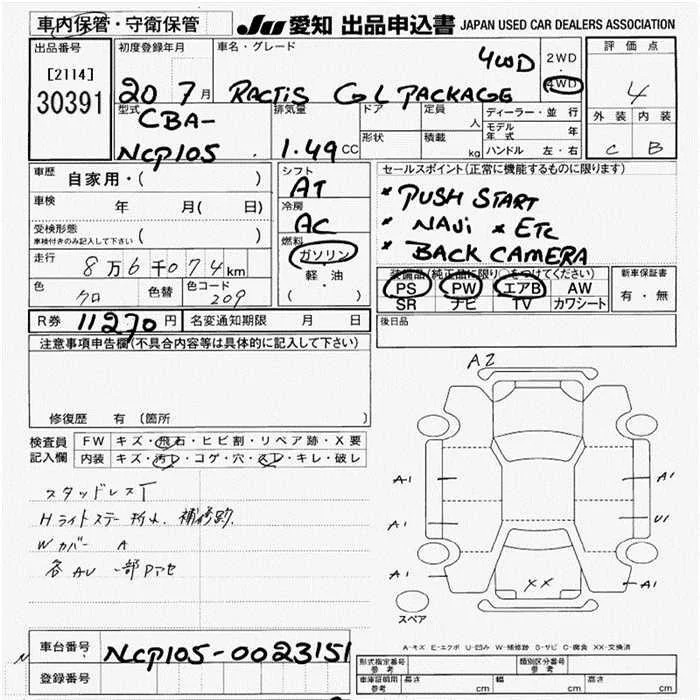 車内保管・守衛保管
JU 愛知 出品申込書 JAPAN USED CAR DEALERS ASSOCIATION
出品番号
[2114]
30391
初度登録年月
20 7月
車名・グレード
4WD
RACTIS G L PACKAGE
2WD
・
4WD
評価点
4
外装 内装
C B
型式
CBA-
NCP105
排気量
1.49CC
ドア 定員 人
形状 積載 kg
ディーラー・並行
モデル年式 年
ハンドル 左・右
車歴 自家用・( )
車検 年 月( 日)
受検形態
車検付きのみ記入して下さい ( )
走行 8万6千074km
色 クロ 色替 色コード 209
シフト
AT
冷房
AC
燃料
ガソリン
軽・油
( )
セールスポイント(正常に機能するものに限ります)
* PUSH START
* NAVI * ETC
* BACK CAMERA
装備品(純正品に限り○をつけてください)
PS PW エアB AW
SR ナビ TV カワシート
新車保証書
有・無
R券 11270円 名変通知期限 月 日
後日品
注意事項申告欄(不具合内容等は具体的に記入して下さい)
修復歴 有 (箇所 )
検査員
記入欄
FW キズ・飛石・ヒビ割・リペア跡・X要
内装 キズ・汚レ・コゲ・穴・スレ・キレ・破レ
スタッドレスT
Hライトステー 補修跡.
Wカバー A
各AU 一部Pアセ
A2
A1
A1
A1
A1
U1
A1
XX
スペア
A-キズ E-エクボ U-凹み W-補修跡 S-サビ C-腐食 XX-交換済
車台番号 NCP105-0023151
登録番号
型式指定番号
参考
類別区分番号
参考
車庫証明用
参考
長さ cm 幅 cm 高さ cm